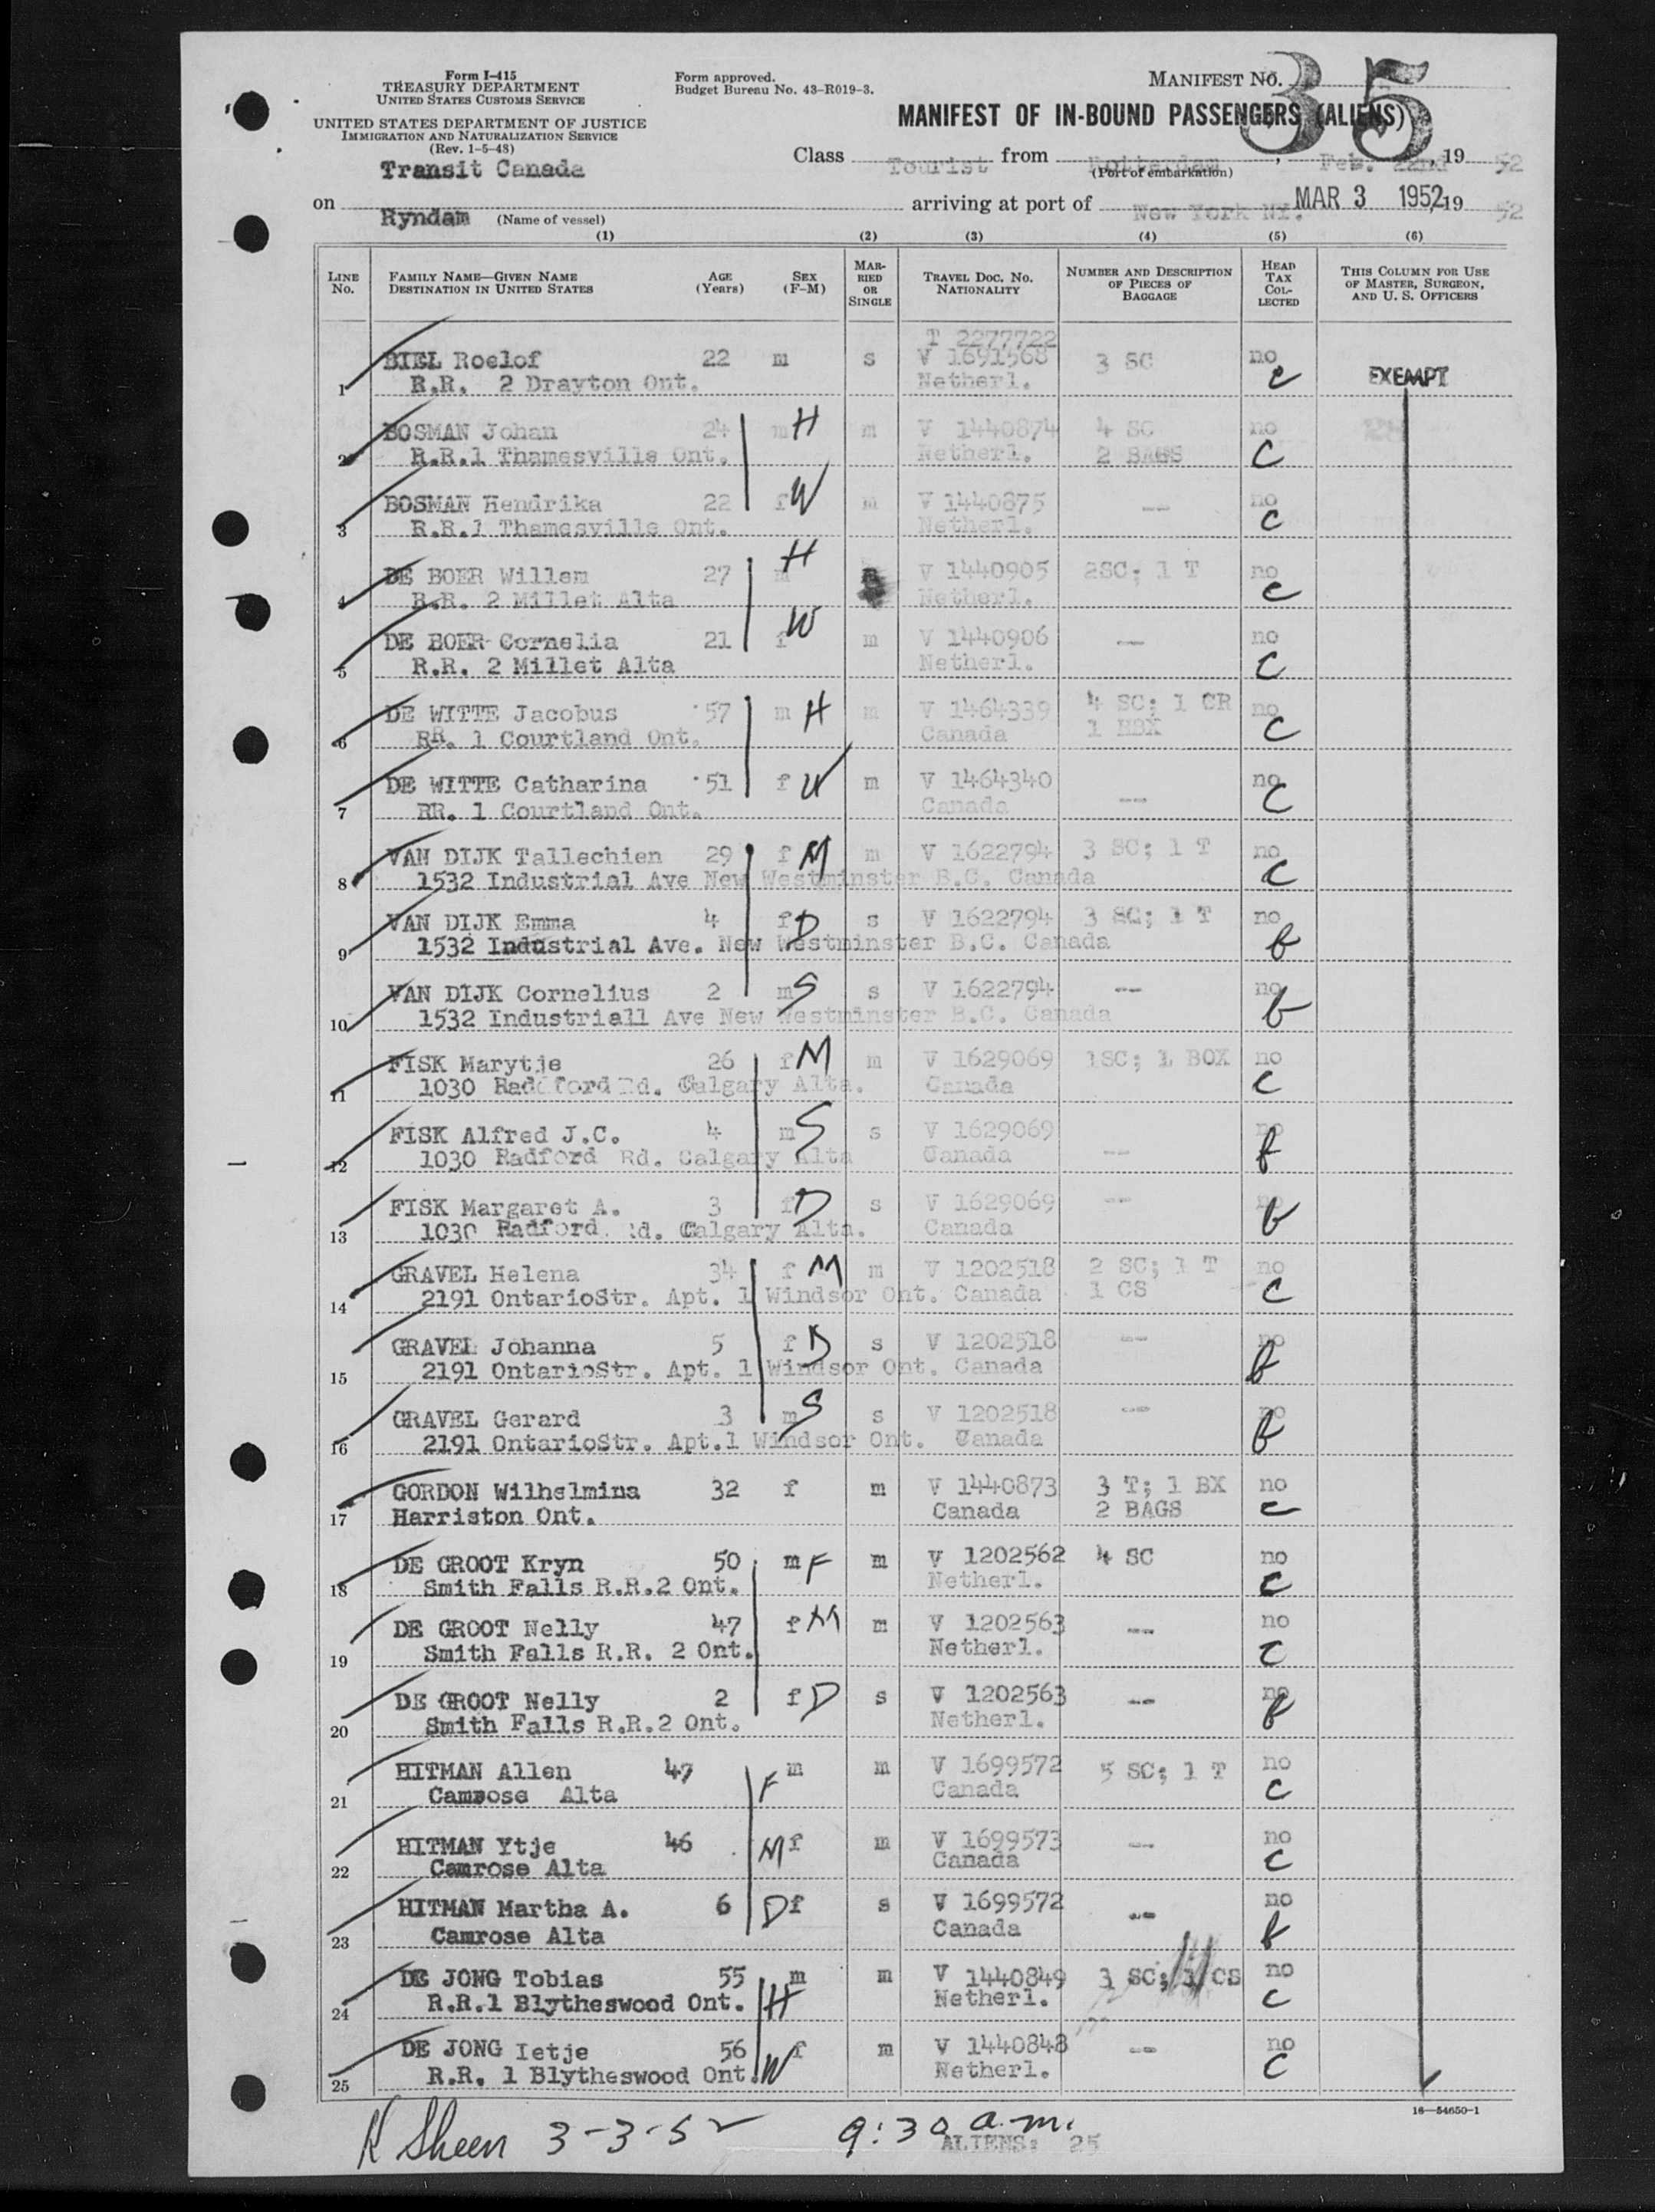 Form I-415
TREASURY DEPARTMENT
UNITED STATES CUSTOMS SERVICE
UNITED STATES DEPARTMENT OF JUSTICE
IMMIGRATION AND NATURALIZATION SERVICE
(Rev. 1-5-48)
Form approved.
Budget Bureau No. 43-R019-3.
MANIFEST NO. 35
MANIFEST OF IN-BOUND PASSENGERS (ALIENS)
Transit Canada
Class Tourist from Rotterdam, Feb. 22nd, 19 52
(Port of embarkation)
on Ryndam arriving at port of New York NY. MAR 3 1952, 19 52
(Name of vessel)
(1) (2) (3) (4) (5) (6)
LINE NO. FAMILY NAME—GIVEN NAME DESTINATION IN UNITED STATES AGE (Years) SEX (F-M) MARRIED OR SINGLE TRAVEL DOC. NO. NATIONALITY NUMBER AND DESCRIPTION OF PIECES OF BAGGAGE HEAD TAX COLLECTED THIS COLUMN FOR USE OF MASTER, SURGEON, AND U. S. OFFICERS
T 2277722
BIEL Roelof 22 m s V 1691568 3 SC no
1 R.R. 2 Drayton Ont. Netherl. c EXEMPT
BOSMAN Johan 24 m H m V 1440874 4 SC no
2 R.R.1 Thamesville Ont. Netherl. 2 BAGS C
BOSMAN Hendrika 22 f W m V 1440875 -- no
3 R.R.1 Thamesville Ont. Netherl. C
DE BOER Willem 27 m H V 1440905 2SC; 1 T no
4 R.R. 2 Millet Alta Netherl. C
DE BOER Cornelia 21 f W m V 1440906 -- no
5 R.R. 2 Millet Alta Netherl. C
DE WITTE Jacobus 57 m H m V 1464339 4 SC; 1 CR no
6 RR. 1 Courtland Ont. Canada 1 HBX C
DE WITTE Catharina 51 f W m V 1464340 no
7 RR. 1 Courtland Ont. Canada -- C
VAN DIJK Tallechien 29 f M m V 1622794 3 SC; 1 T no
8 1532 Industrial Ave New Westminster B.C. Canada C
VAN DIJK Emma 4 f D s V 1622794 3 SC; 1 T no
9 1532 Industrial Ave. New Westminster B.C. Canada f
VAN DIJK Cornelius 2 m S s V 1622794 -- no
10 1532 Industriall Ave New Westminster B.C. Canada f
FISK Marytje 26 f M m V 1629069 1SC; 1 BOX no
11 1030 Radford Rd. Calgary Alta. Canada C
FISK Alfred J.C. 4 m S s V 1629069 no
12 1030 Radford Rd. Calgary Alta Canada -- f
FISK Margaret A. 3 f D s V 1629069 -- no
13 1030 Radford Rd. Calgary Alta. Canada f
GRAVEL Helena 34 f M m V 1202518 2 SC; 1 T no
14 2191 OntarioStr. Apt. 1 Windsor Ont. Canada 1 CS C
GRAVEL Johanna 5 f D s V 1202518 -- no
15 2191 OntarioStr. Apt. 1 Windsor Ont. Canada f
GRAVEL Gerard 3 m S s V 1202518 -- no
16 2191 OntarioStr. Apt.1 Windsor Ont. Canada f
GORDON Wilhelmina 32 f m V 1440873 3 T; 1 BX no
17 Harriston Ont. Canada 2 BAGS C
DE GROOT Kryn 50 m F m V 1202562 4 SC no
18 Smith Falls R.R.2 Ont. Netherl. C
DE GROOT Nelly 47 f M m V 1202563 -- no
19 Smith Falls R.R. 2 Ont. Netherl. C
DE GROOT Nelly 2 f D s V 1202563 -- no
20 Smith Falls R.R.2 Ont. Netherl. f
HITMAN Allen 47 F m m V 1699572 5 SC; 1 T no
21 Camrose Alta Canada C
HITMAN Ytje 46 M f m V 1699573 -- no
22 Camrose Alta Canada C
HITMAN Martha A. 6 D f s V 1699572 -- no
23 Camrose Alta Canada f
DE JONG Tobias 55 m m V 1440849 3 SC; CS no
24 R.R.1 Blytheswood Ont. H Netherl. C
DE JONG Ietje 56 f m V 1440848 -- no
25 R.R. 1 Blytheswood Ont. W Netherl. C
16—54650-1
K Sheen 3-3-52 9:30 a.m.
ALIENS: 25